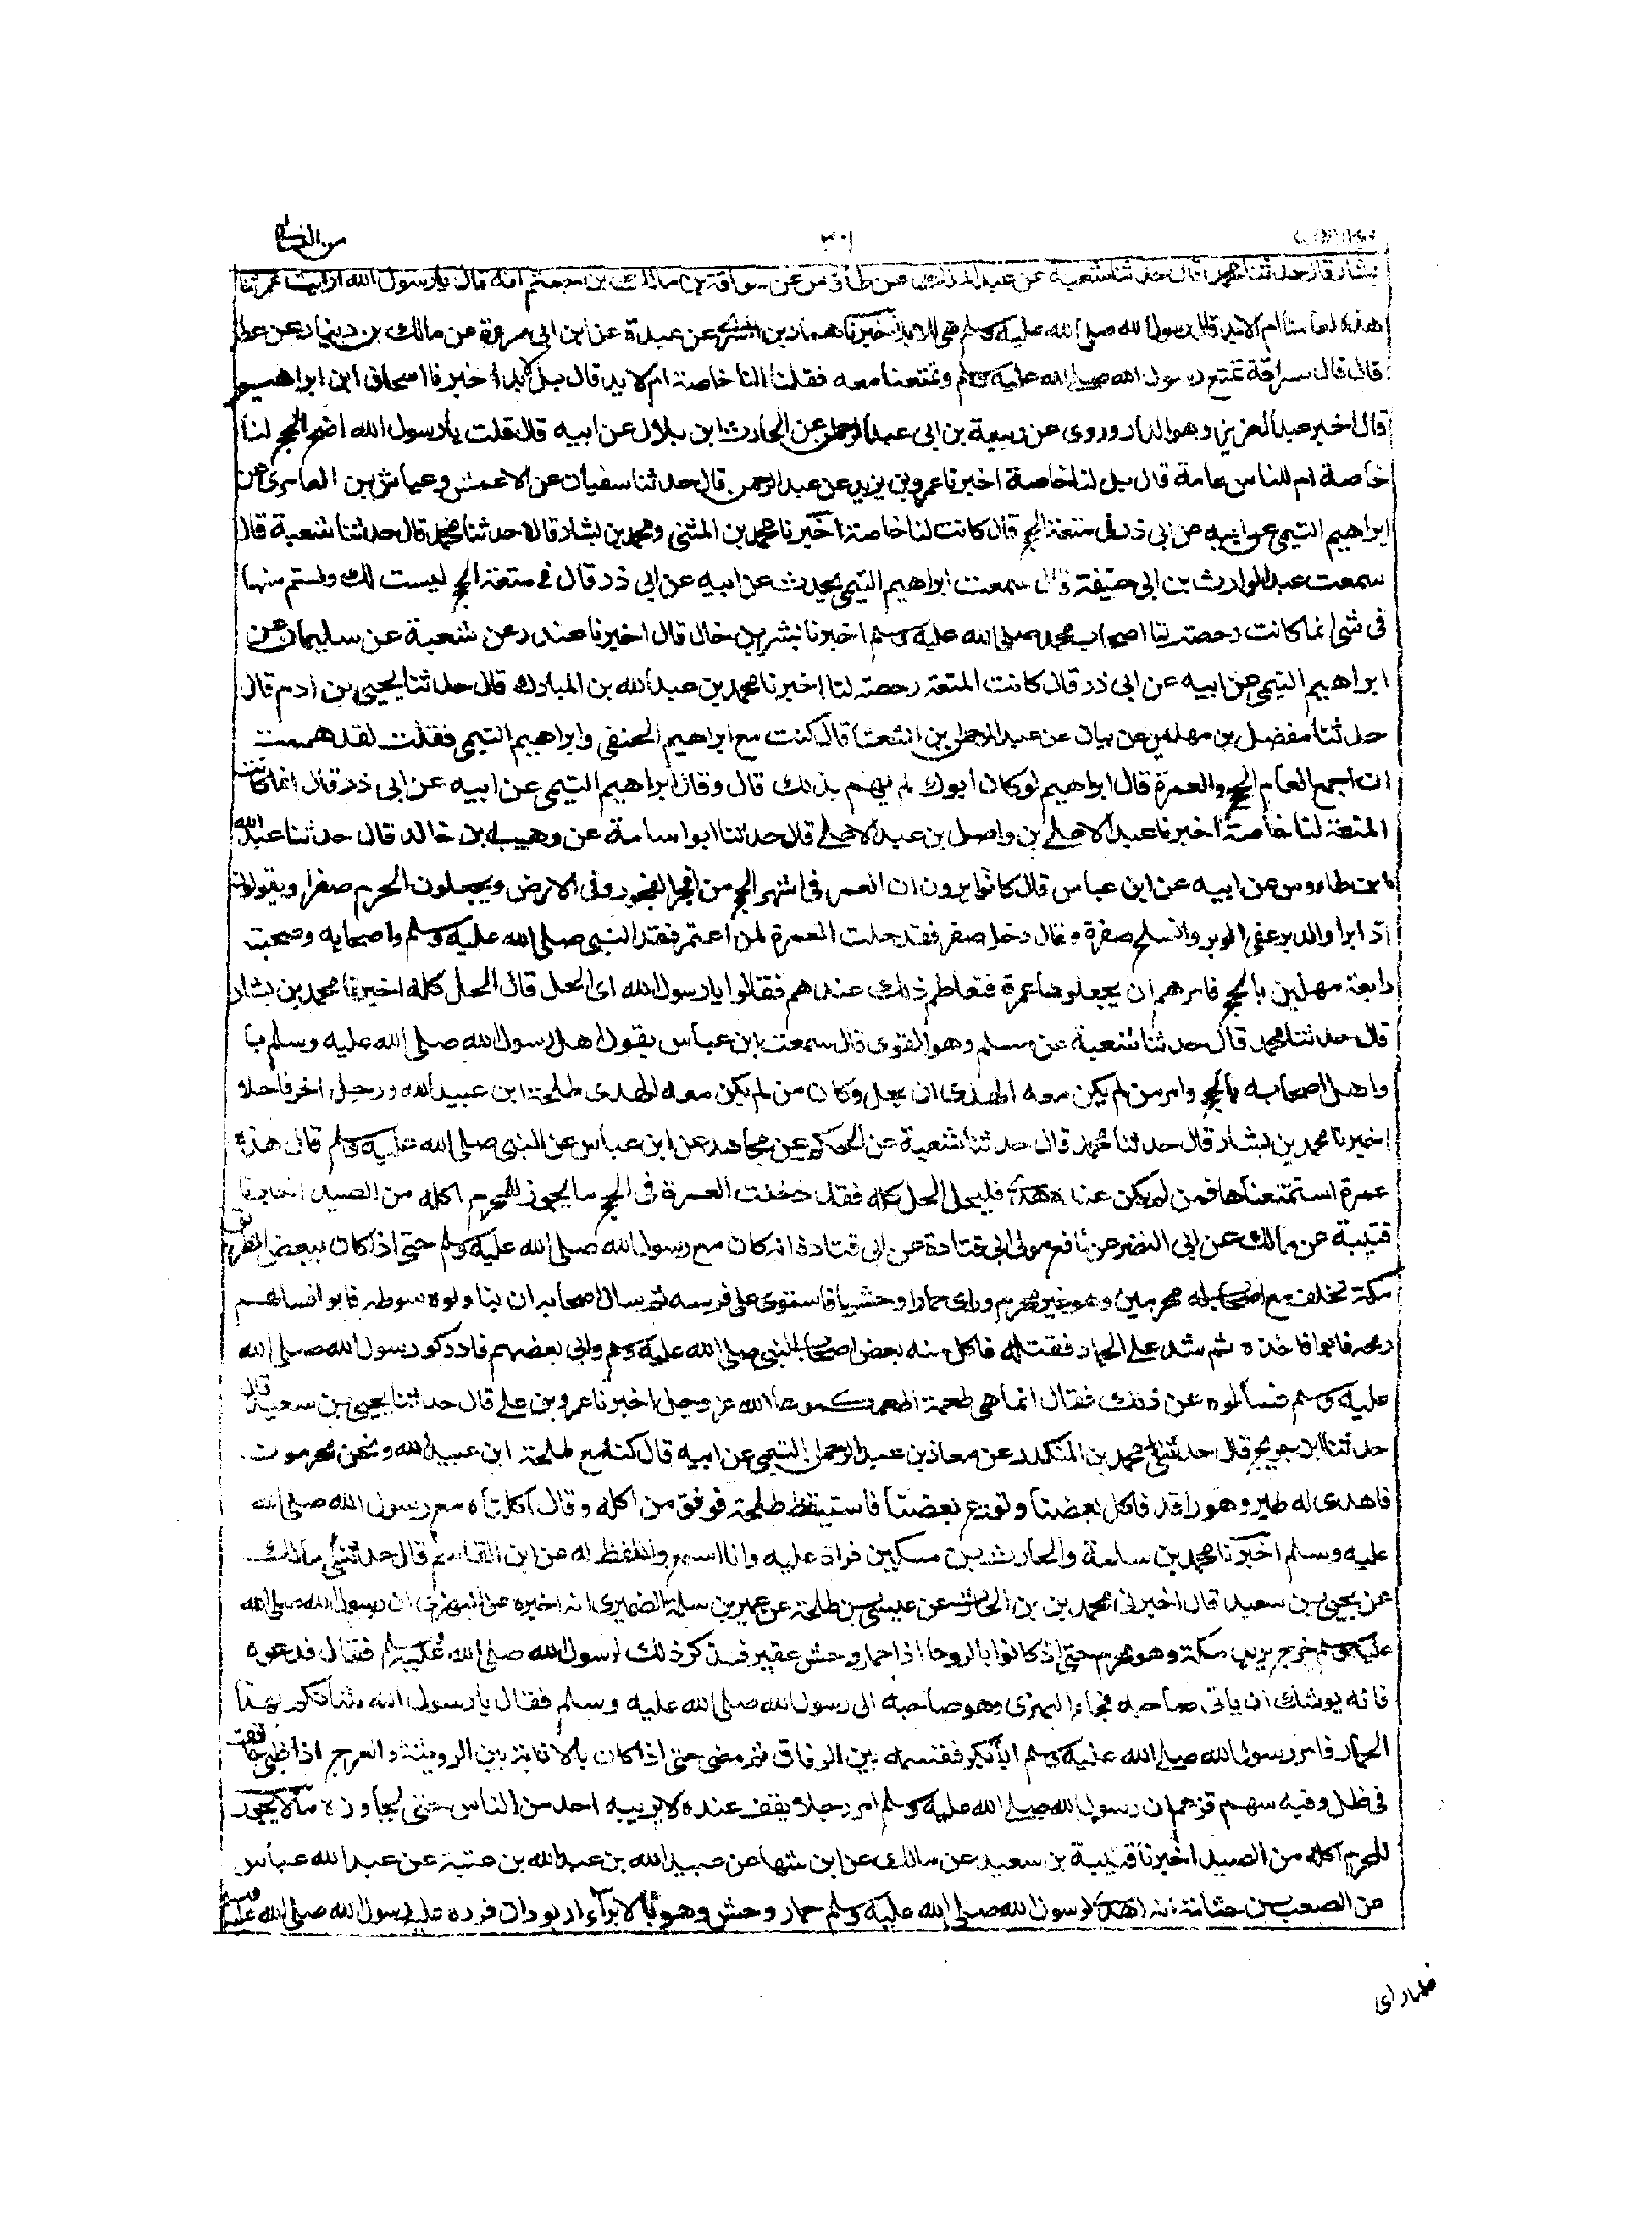 من النساء
٣٠١
بشار قال حدثنا محمد قال حدثنا شعبة عن عبد الملك عن طاؤس عن سراقة بن مالك بن جعشم انه قال يا رسول الله ارايت عمرتنا
هذه لعامنا ام لابد قال رسول الله صلى الله عليه وسلم هي للابد اخبرنا هناد بن السري عن عبدة عن ابن ابي عروبة عن مالك بن دينار عن عطا
قال قال سراقة تمتع رسول الله صلى الله عليه وسلم وتمتعنا معه فقلنا النا خاصة ام لابد قال بل لابد اخبرنا اسحاق ابن ابراهيم
قال اخبر عبد العزيز وهو الدراوردى عن ربيعة بن ابى عبد الرحمن عن الحارث ابن بلال عن ابيه قال قلت يا رسول الله افسخ الحج لنا
خاصة ام للناس عامة قال بل لنا خاصة اخبرنا عمرو بن يزيد عن عبد الرحمن قال حدثنا سفيان عن الاعمش وعياش بن العامرى عن
ابراهيم التيمى عن ابيه عن ابى ذر فى متعة الحج قال كانت لنا خاصة اخبرنا محمد بن المثنى ومحمد بن بشار قالا حدثنا محمد قال حدثنا شعبة قال
سمعت عبد الوارث بن ابى حنيفة قال سمعت ابراهيم التيمى يحدث عن ابيه عن ابى ذر قال فى متعة الحج ليست لك ولستم منها
فى شئ انما كانت رخصة لنا اصحاب محمد صلى الله عليه وسلم اخبرنا بشر بن خال قال اخبرنا غندر عن شعبة عن سليمان عن
ابراهيم التيمى عن ابيه عن ابى ذر قال كانت المتعة رخصة لنا اخبرنا محمد بن عبد الله بن المبارك قال حدثنا يحيى بن ادم قال
حدثنا مفضل بن مهلهل عن بيان عن عبد الرحمن بن الشعثا قال كنت مع ابراهيم الحنفى وابراهيم التيمى فقلت لقد هممت
ان اجمع العام الحج والعمرة قال ابراهيم لو كان ابوك لم يهم بذلك قال وقال ابراهيم التيمى عن ابيه عن ابى ذر قال انما كانت
المتعة لنا خاصة اخبرنا عبد الاعلى بن واصل بن عبد الاعلى قال حدثنا ابو اسامة عن وهيب بن خالد قال حدثنا عبد الله
ابن طاءوس عن ابيه عن ابن عباس قال كانوا يرون ان العمر فى اشهر الحج من افجر الفجور فى الارض ويجعلون المحرم صفرا ويقولون
اذا برا والدبر عفى الوبر وانسلخ صفر وقال دخل صفر فقد حلت العمرة لمن اعتمر فقد النبى صلى الله عليه وسلم واصحابه وصحبته
رابعة مهلين بالحج فامرهم ان يجعلوها عمرة فتعاظم ذلك عندهم فقالوا يا رسول الله اى الحل قال الحل كله اخبرنا محمد بن بشار
قال حدثنا محمد قال حدثنا شعبة عن مسلم وهو القوى قال سمعت ابن عباس يقول اهل رسول الله صلى الله عليه وسلم با
واهل اصحابه بالحج وامر من لم يكن معه الهدى ان يحل وكان من لم يكن معه الهدى طلحة ابن عبيد الله ورجل اخر فاحلا
اخبرنا محمد بن بشار قال حدثنا محمد قال حدثنا شعبة عن الحكم عن مجاهد عن ابن عباس عن النبى صلى الله عليه وسلم قال هذه
عمرة استمتعناها فمن لم يكن عنده هدى فليحل الحل كله فقد دخلت العمرة فى الحج ما يجوز للمحرم اكله من الصيد اخبرنا
قتيبة عن مالك عن ابى النضر عن نافع مولى ابى قتادة عن ابى قتادة انه كان مع رسول الله صلى الله عليه وسلم حتى اذا كان ببعض طريق
مكة تخلف مع اصحاب له محرمين وهو غير محرم وراى حمارا وحشيا فاستوى على فرسه ثم سال اصحابه ان يناولوه سوطه فابوا فسالهم
رمحه فابوا فاخذه ثم شد على الحمار فقتله فاكل منه بعض اصحاب النبى صلى الله عليه وسلم وابى بعضهم فادركو رسول الله صلى الله
عليه وسلم فسألوه عن ذلك فقال انما هى طعمة اطعمكموها الله عز وجل اخبرنا عمرو بن على قال حدثنا يحيى بن سعيد قال
حدثنا ابن جريج قال حدثنى محمد بن المنكدر عن معاذ بن عبد الرحمن التيمى عن ابيه قال كنا مع طلحة ابن عبيد الله ونحن محرمون
فاهدى له طير وهو راقد فاكل بعضنا وتورع بعضنا فاستيقظ طلحة فوفق من اكله وقال اكلناه مع رسول الله صلى الله
عليه وسلم اخبرنا محمد بن سلمة والحارث بن مسكين قراة عليه وانا اسمع واللفظ له عن ابن القاسم قال حدثنى مالك
عن يحيى بن سعيد قال اخبرنى محمد بن بن الحارث عن عيسى بن طلحة عن عمير بن سلمة الضميرى انه اخبره عن البهزى ان رسول الله صلى الله
عليه وسلم خرج يريد مكة وهو محرم حتى اذ كانوا بالروحا اذا حمار وحش عقير فذكر ذلك لرسول الله صلى الله عليه وسلم فقال فدعوه
فانه يوشك ان ياتى صاحبه فجاء البهزى وهو صاحبه الى رسول الله صلى الله عليه وسلم فقال يا رسول الله شانكم بهذا
الحمار فامر رسول الله صلى الله عليه وسلم ابا بكر فقسمه بين الرفاق ثم مضى حتى اذا كان بالاثابة بين الرويثة والعرج اذا ظبى حاقف
فى ظل وفيه سهم فزعم ان رسول الله صلى الله عليه وسلم امر رجلا يقف عنده لا يريبه احد من الناس حتى يجاوزه ما لا يجوز
للمحرم اكله من الصيد اخبرنا قتيبة بن سعيد عن مالك عن ابن شهاب عن عبيد الله بن عبد الله بن عتبة عن عبد الله عباس
عن الصعب بن جثامة انه اهدى لرسول الله صلى الله عليه وسلم حمار وحش وهو بالابراء او بودان فرده عليه رسول الله صلى الله عليه وسلم
فلما راى